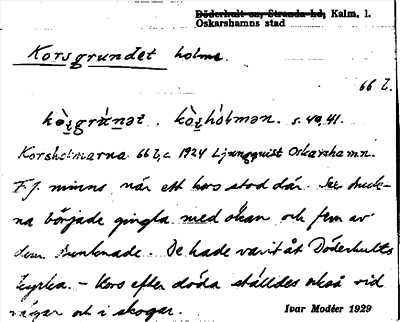 Döderhult sn, Stranda hd, Kalm. l.
Oskarshamns stad
Korsgrundet holme.
66 l.
kòs̱grúnət. kòs̱hólmən. s. 40, 41.
Korsholmarna 66 l, c 1924 Ljungquist Oskarshamn.
F.J. minns när ett kors stod där. Sex
na började gingla med ökan och fem av
dem drunknade. De hade varit åt Döderhults
kyrka. – Kors efter döda ställdes också vid
vägar och i skogar.
Ivar Modéer 1929